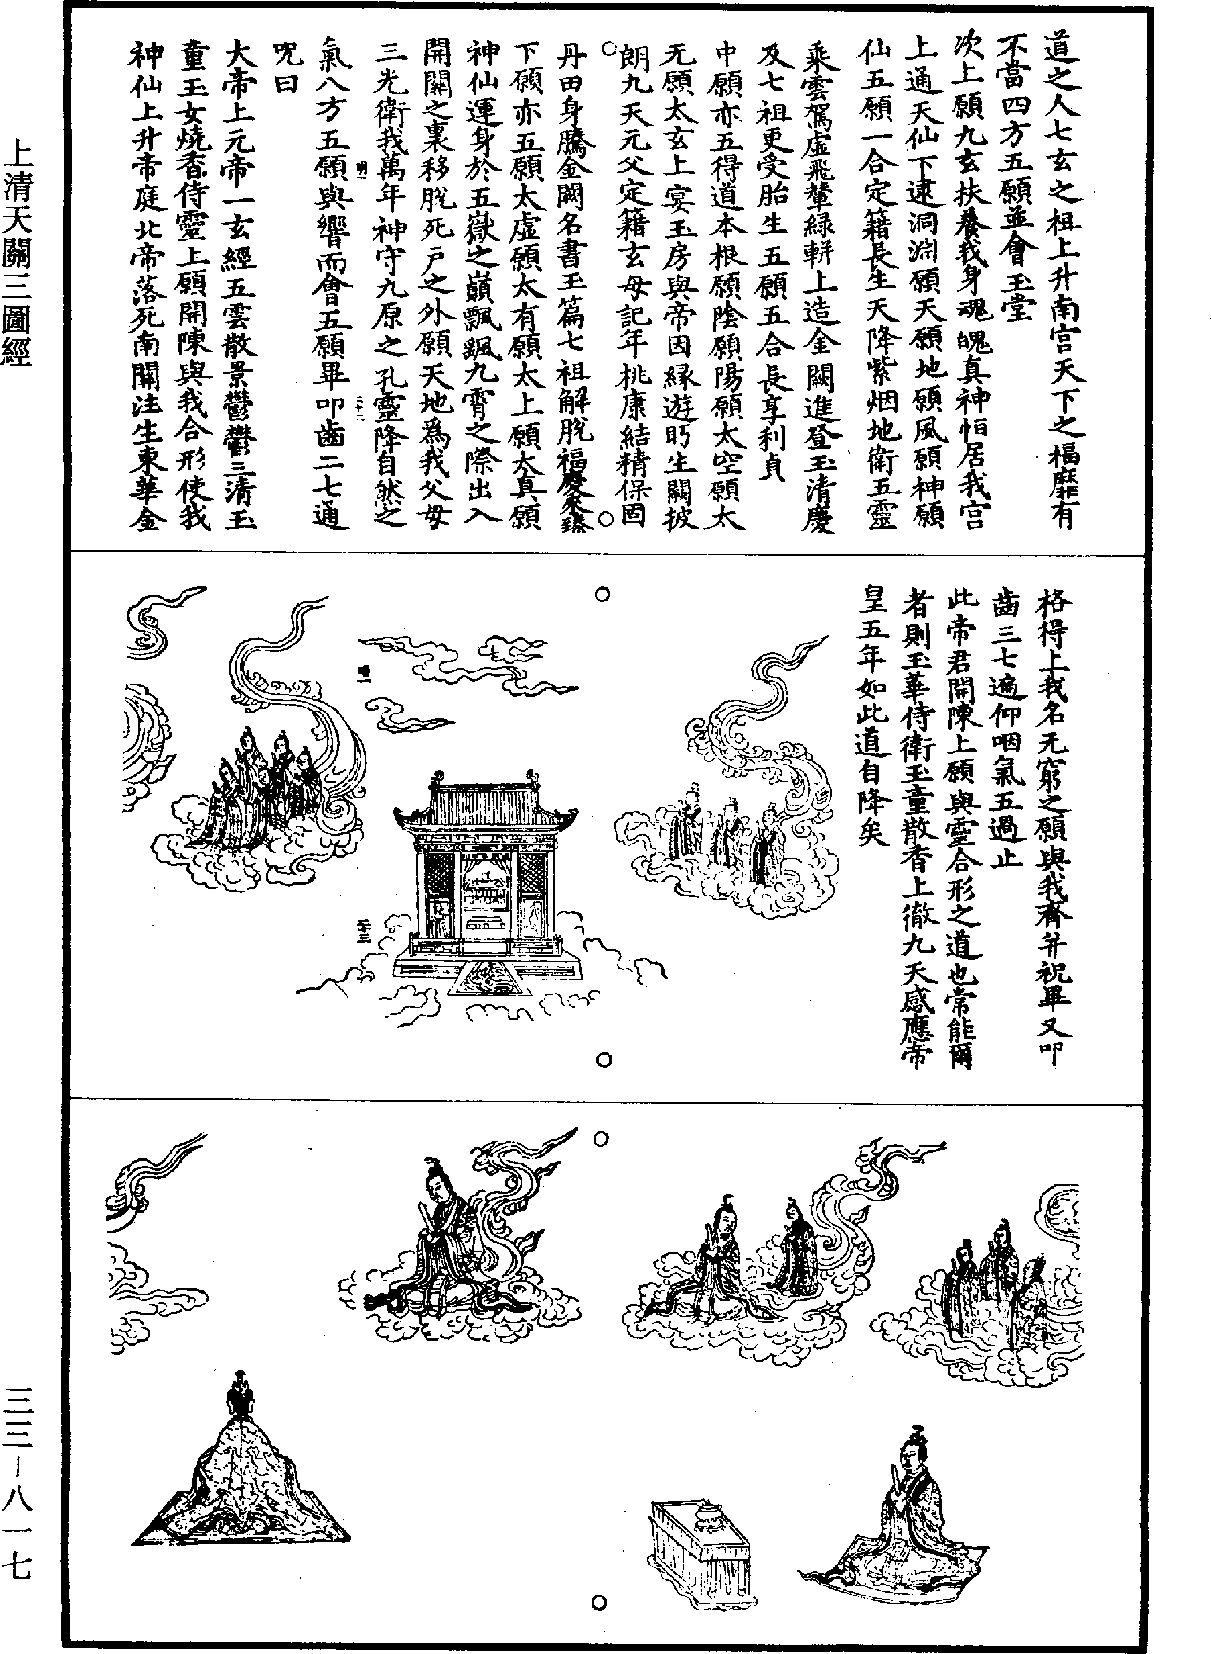 道之人七玄之祖上升南宫天下之福靡有
不當四方五願並會玉堂
次上願九玄扶養我身魂魄真神怕居我宫
上通天仙下逮洞淵願天願地願風願神願
仙五願一合定籍長生天降紫烟地衛五靈
乘雲駕虛飛輦緑軿上造金闕進登玉清慶
及七祖更受胎生五願五合長享利貞
中願亦五得道本根願陰願陽願太空願太
无願太玄上宴玉房與帝因緣遊眄生關披
朗九天元父定籍玄母記年桃康結精保固
丹田身騰金闕名書玉篇七祖解脫福慶來臻
下願亦五願太虛願太有願太上願太真願
神仙運身於五嶽之巔飄飄九霄之際出入
開關之裏移脫死户之外願天地爲我父母
三光衛我萬年神守九原之孔靈降自然之
氣八方五願與響而會五願畢叩齒二七通
呪曰
大帝上元帝一玄經五雲散景鬱鬱三清玉
童玉女燒香侍靈上願開陳與我合形使我
神仙上升帝庭北帝落死南關注生東華金
格得上我名无窮之願與我齊并祝畢又叩
齒三七遍仰咽氣五過止
此帝君開陳上願與靈合形之道也常能爾
者則玉華侍衛玉童散香上徹九天感應帝
皇五年如此道自降矣
上清天關三圖經
三三—八一七